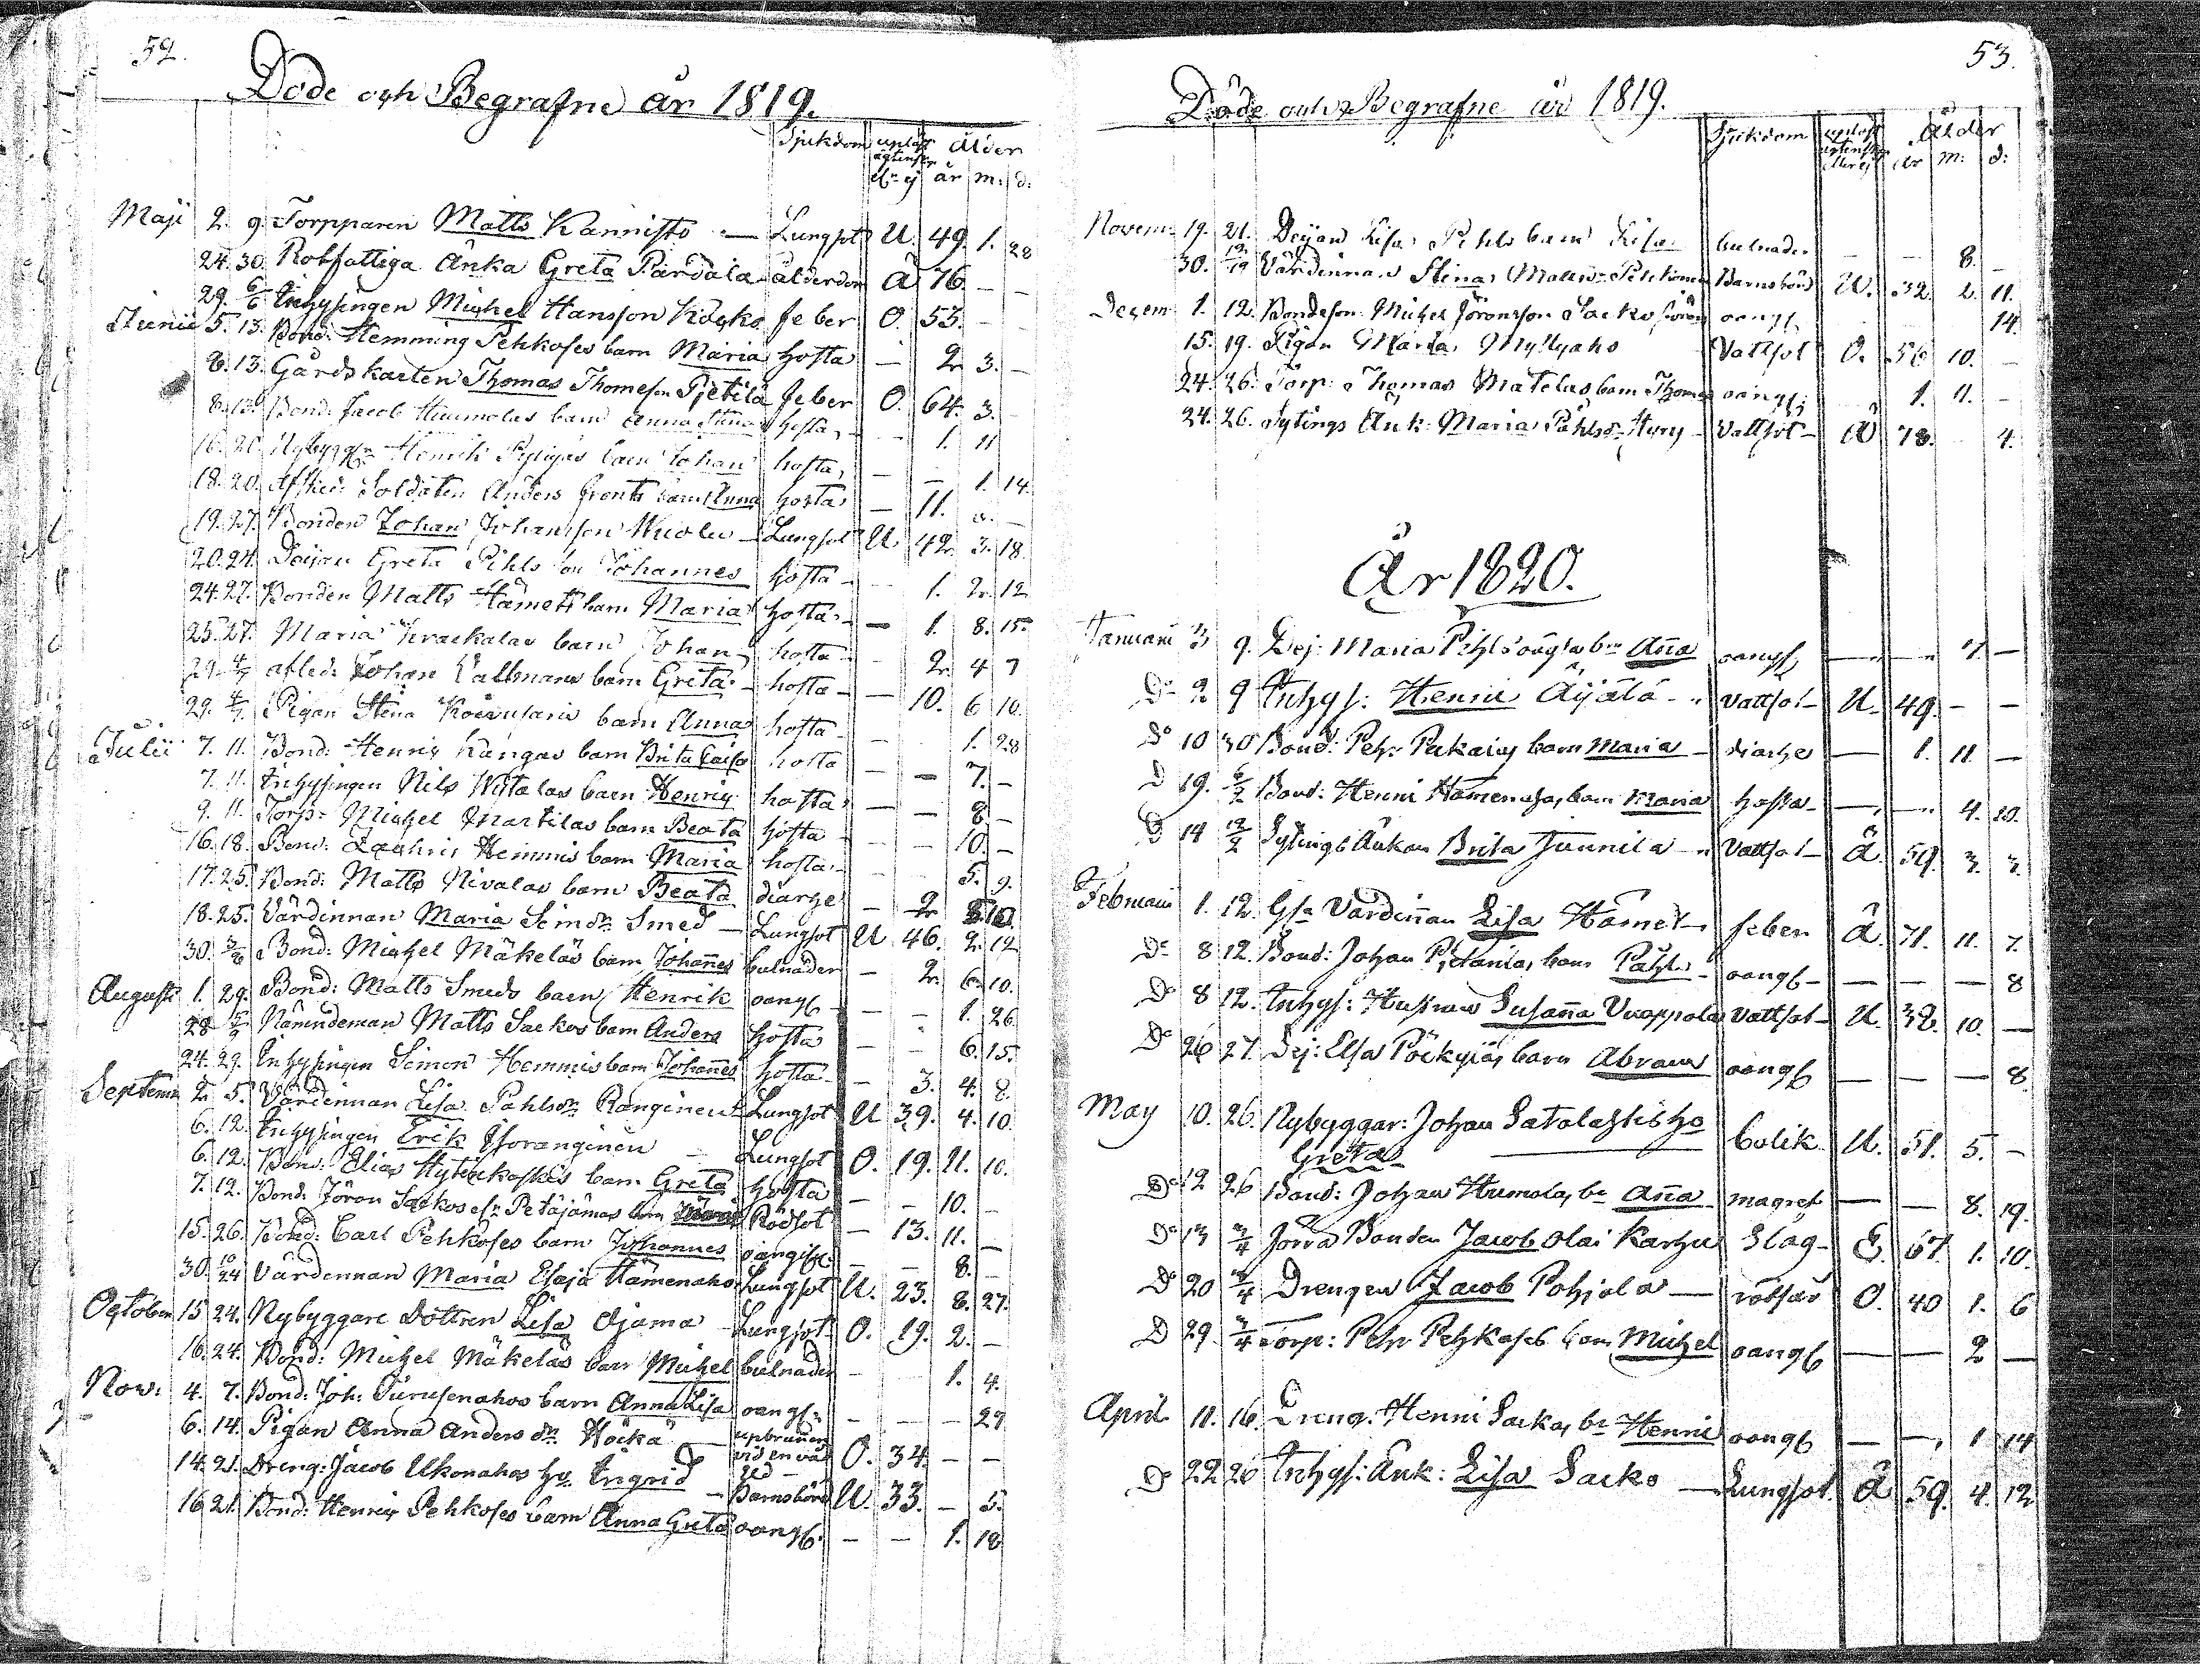 52.
Döde och Begrafne år 1819.
Sjukdom uplöst ägtensk. elr ej Ålder år m: d:
Maji 2. 9. Torpparen Matts Kannisto — Lungsot U. 49. 1. 28
24. 30. Rotfattiga Änka Greta Pärdälä ålderdom Ä 76. — —
29. 6/6 Inhysingen Michel Hansson Kocko feber O. 53. —
Junii 5. 13. Bond: Hemming Pehkoses barn Maria hosta — 2. 3. —
8. 13. Gårdskarlen Thomas Thomeson Pjetilä feber O. 64. 3. —
8. 13. Bond: Jacob Hummolas barn Anna Stina hosta — 1. 11
16. 20. Nybygg: Henrik barn Johan hosta — — 1. 14.
18. 20. Afsked: Soldaten Anders barn Anna hosta — 11. — —
19. 27. Bonden Johan Johansson — Lungsot U. 42. 3. 18.
20. 24. Deijan Greta Pihls son Johannes hosta — 1. 2. 12
24. 27. Bonden Matts Hämets barn Maria hosta — 1. 8. 15.
25. 27. Maria Kraekalas barn Johan hosta — 2. 4 7
29. 4/7 afled: Johan Callmans barn Greta — hosta — 10. 6 10.
29. 4/7 Pigan Stina barn Anna hosta — 1. 28
Julii 7. 11. Bond: Henric Kangas barn Brita Caisa hosta — — 7. —
7. 11. Inhysingen Nils Witalas barn Henric hosta — — 8 —
9. 11. Torp: Michel Martilas barn Beata hosta — — 10. —
16. 18. Bond: Zachris Hemmis barn Maria hosta — 5. 9.
17. 25. Bond: Matts Nivalas barn Beata diarhe — 2 8. 10.
18. 25. Värdinnan Maria Simsdr Smed — Lungsot U 46. 2. 12
30. Bond: Michel Mäkeläs barn Johannes bulnader — 2. 6. 10.
Augusti 1. 29. Bond: Matts Smeds barn Henrik oangf — — 1. 26
28 5/9 Nämndeman Matts Sarkos barn Anders hosta — — 6. 15.
24. 29. Inhysingen Simon Hemmis barn Johannes hosta — 3. 4. 8.
Septem 2. 5. Värdinnan Lisa Påhlsdr Ranginen Lungsot U 39. 4. 10.
6. 12. Inhysingen Erik Isoranginen — Lungsot O. 19. 11. 10.
6. 12. Bond: Elias barn Greta hosta — — 10. —
7. 12. Bond: Jöran Sarkos elr Petäjämas barn Rödsot — 13. 11. —
15. 26. Bond: Carl Pehkoses barn Johannes oangif — — 8. —
30. 10/24 Värdinnan Maria Esaja Hämenaho Lungsot U. 23. 8. 27.
October 15 24. Nybyggare Dottren Lisa Ojama Lungsot O. 19. 2. —
16. 24. Bond: Michel Mäkeläs barn Michel bulnader — — 1. 4.
Nov: 4. 7. Bond: Joh: Purusenahos barn Anna Lisa oangf: — — — 29
6. 14. Pigan Anna Andersdr Höckä — upbrunnen vid en våd eld — O. 34. — —
14. 21. Dreng: Jacob Ukonahos hu Ingrid — Barnsbörd U. 33. — 5.
16 21. Bond: Henric Pehkoses barn Anna Greta oangf. — — 1. 18
53.
Döde och Begrafne år 1819.
Sjukdom uplöst ägtensk eller ej Ålder år m: d:
Novem: 19. 21. Deijan Lisa Pihls barn Lisa bulnader — — 8. —
30. 12/19 Värdinnan Stina Matts Barnsbörd U. 32. 2. 11.
Decem 1. 12. Bondeson Michel Jöransson Sarko oangf. 14
15. 19. Pigan Maria Myllyaho Vattsot O. 56 10. —
24. 26. Torp: Thomas Matelas barn Thomas oangf: 1. 11. —
24. 26. Sytings Änk: Maria Påhlsdr Hyry — Vattsot — Ä 78. 4.
År 1820.
Januarii 3 9. Dej: Maria Pihls oägta bn Aña oangf — — 7. —
Do 2 9 Inhys: Henric Äijälä — Vattsot — U. 49. — —
Do 10 30 Bond: Pehr barn Maria — diarhe — 1. 11. —
D 19. 6/2 Bond: Henric Hämenahos barn Maria hosta — — 4. 20.
D 14 12/2 Sytings Änkan Brita Junnila — Vattsot — Ä. 59. 3. 3.
Februarii 1. 12. Gla Värdiñan Lisa Hämet feber Ä. 71. 11. 7.
Do 8 12. Bond: Johan Pjetänia, barn Påhl — oangf — — — 8
Do 8 12. Inhys: Hustrun Susaña Vuoppola Vattsot — U. 32. 10. —
Do 26 27. Dej: Elsa Pöckyläs barn Abram oangf — — — 8
May 10. 26. Nybyggar: Johan Satalahtis ho Greta Colik U. 51. 5. —
Do 12 26 Bond: Johan Humola, bn Aña magref — — 8. 19.
Do 13 3/4 Förra Bonden Jacob Olai Karhu Slag — E. 67. 1. 10.
D 20 3/4 Drengen Jacob Pohjola — rötsår O. 40 1. 6
D 29 3/4 Torp: Pehr Pehkoses barn Michel oangf — — 2 —
April 11. 16. Dreng: Henric Sarka, bn Henric oangf — — 1 14
Do 22 26 Inhys: Änk: Lisa Sarko — Lungsot. Ä 59. 4. 12